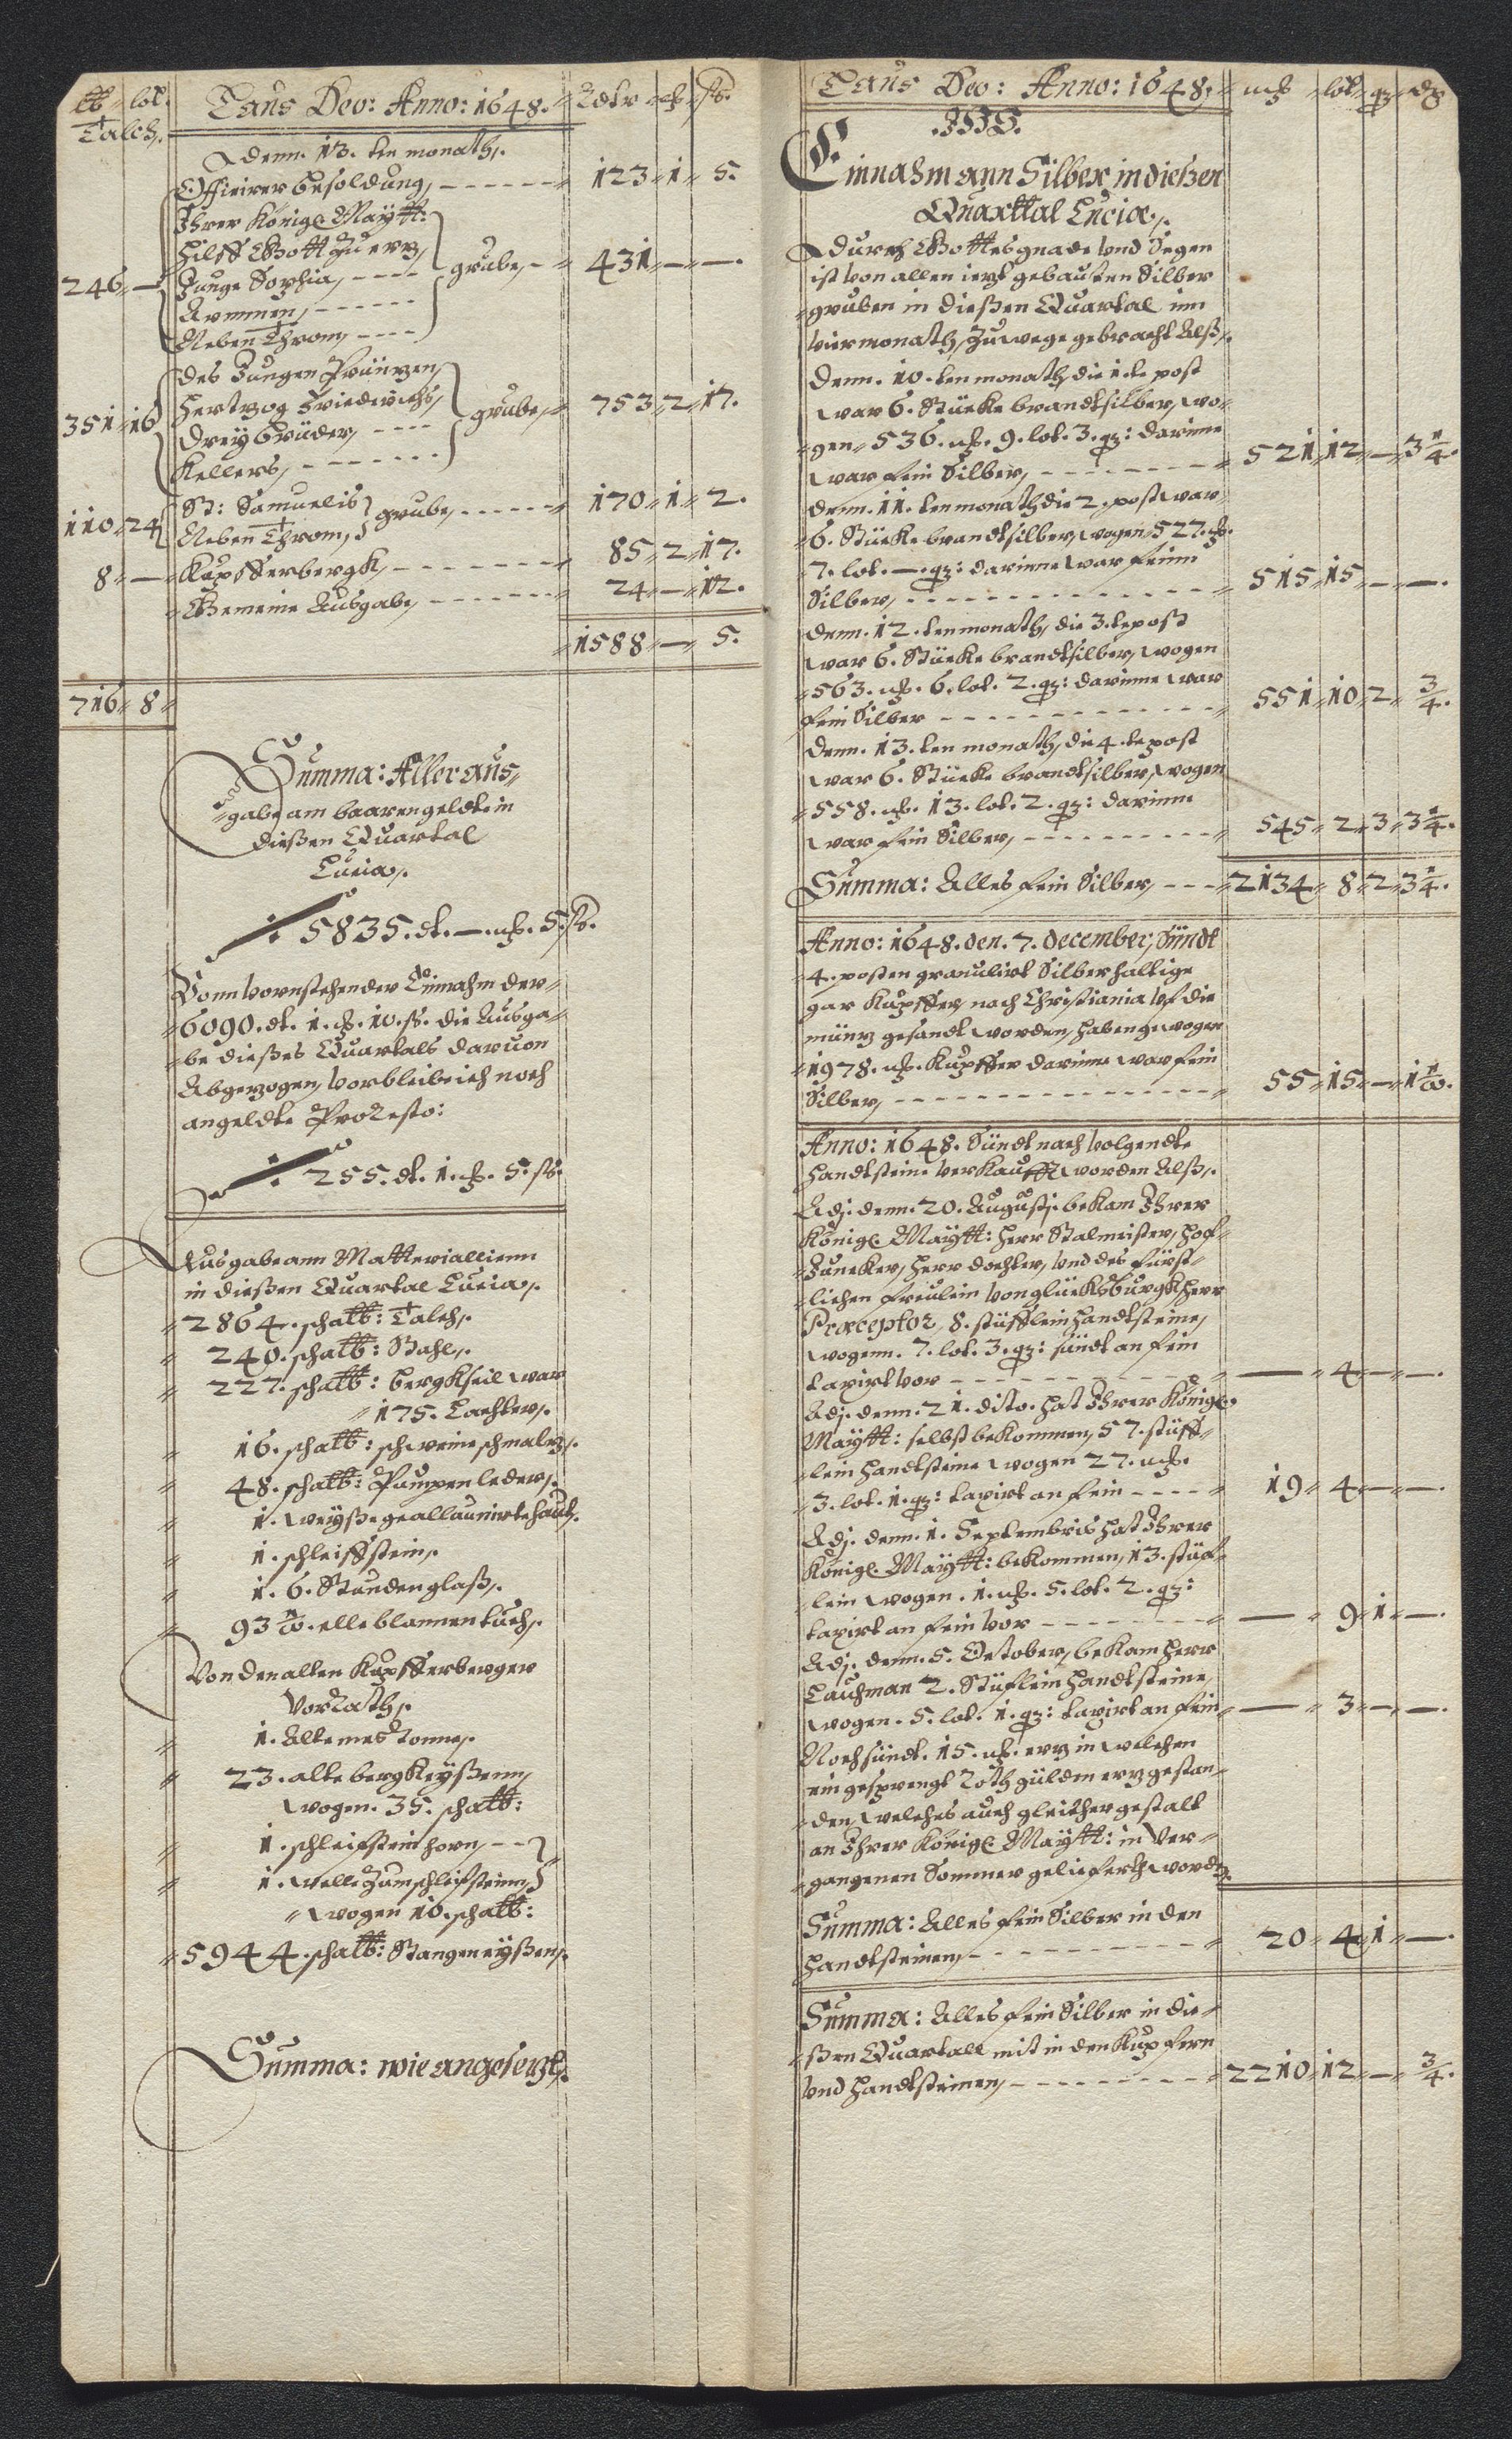 ℔ lot. Laus Deo: Anno: 1648. Rdlr ß.
Talch.
denn. 13. ten monath,.
Officirer besoldung, - - - - - - 123 1 5.
Ihrer Königl. Maÿtt:
hilff Gott Zu erz,
246 — Junge Sophia, - - - - grube, - 431 — —.
Armmen, - - - - -
Neben Throm, - - - -
des Jungen Printzen,
351 16 hertzog Friederichs, grube, 753 2 17.
Dreÿ Brüder, - - - -
Kellers, - - - - - - -
St: Samuelis
110 24 Neben Throm, grube, - - - - - - 170 1 2.
8 — Kupfferbergk, - - - - - - - - 85 2 17.
Gemeine Ausgabe, - - - - - - - 24 — 12.
1588 — 5.
716 8
Summa: Aller aus-
gabe am baaren geldt in
dießen Quartal
Lucia,.
5835. dl. — . 5. ß.
Vonn vornstehender Einnahm der
6090. dl. 1. 10. ß. die Ausga-
be dießes Quartals daruon
Abgezogen, vorbleibe ich noch
an geldte Pro Resto:
255. dl. 1. 5. ß.
Ausgabe ann Matteriallienn
in dießen Quartal Lucia,.
2864. schal℔: Talch,.
240. schal℔: Stahl,.
227. schal℔: bergkseil war
175. Lachter,.
16. schal℔: schweineschmaltz,.
48. schal℔: Pumpenleder,.
1. weÿße geallaunirte haut,.
1. schleiffstein,.
1. 6. Stundenglaß,.
93 ½. elle blannentuch,.
Von den alten Kupfferberger
Vorrath,.
1. Alte mes tonne,.
23. alte bergkeÿßenn,
wogen. 35. schal℔:
1. schleifsteinhorn, - -
1. welle Zum schleifsteinn
wogen 10. schal℔:
5944. schal℔: Stangen eÿßen,.
Summa: wie angesetzt,.
Laus Deo: Anno: 1648. mk lot qz dg
Einnahm ann Silber in dießen
Quarttal Luciæ,.
durch Gottes gnade Vnd Segen
ist von allen ietzt gebauten Silber
gruben in dießen Quartal im
vier monath, Zuwege gebracht Alß,.
Denn. 10. ten monath, die 1. te post
war 6. Stücke brandtsilber, wo-
gen 536. mk. 9. lot. 3. qz: darinne
war fein Silber, - - - - - - - - 521 12 — 3 ¼.
Denn. 11. ten monath die 2. post war
6. Stücke brandtsilber, wogen, 527. mk.
7. lot. — qz: darinne war feinn
Silber, - - - - - - - - - - - - - 515 15 — —.
Denn. 12. ten monath, die 3. te post
war 6. Stücke brandtsilber, wogen
563. mk. 6. lot. 2. qz: darinne war
fein Silber - - - - - - - - - - - - 551 10 2 ¾.
Denn. 13. ten monath, die 4. te post
war 6. Stücke brandtsilber, wogen
558. mk. 13. lot. 2. qz: darinne
war fein Silber, - - - - - - - - - - 545 2 3 3 ¼.
Summa: Alles fein Silber, - - - 2134 8 2 3 ¼.
Anno: 1648. den. 7. december, Sündt
4. posten granulirt Silberhaltige
gar Kupffer, nach Christiania vf die
müntz gesandt worden, haben gewogen
1978. mk. Kupffer darinne war fein
Silber, - - - - - - - - - - - - - - 55 15 — 1 ½.
Anno: 1648. Sündt nach volgendte
handtsteine verkaufft worden Alß,.
Adj. denn. 20. Augusti. bekam Ihrer
Königl. Maÿtt: herr Stalmeister, hof-
Juncker, herr dochter, vnd des fürst-
lichen freulein von glücksburgk herr
Præceptor, 8. stüfflein handtsteine,
wogenn. 7. lot. 3. qz: sündt an fein
taxirt vor - - - - - - - - - - - - — 4 — —.
Adj. denn. 21. dito. hat Ihrer Königl.
Maÿtt: selbst bekommen, 57. stüff-
lein handtsteine wogen 27. mk.
3. lot. 1. qz: taxirt an fein - - - - 19 4 — —.
Adj. denn. 1. Septembris hat Ihrer
Königl. Maÿtt: bekommen, 13. stüf-
lein wogen. 1. mk. 5. lot. 2. qz:
taxirt an fein vor - - - - - - - - — 9 1 —.
Adj. denn. 5. October, bekam herr
Lauhman 2. Stüflein handtsteine,
wogen. 5. lot. 1. qz: taxirt an fein — 3 — —.
Noch sündt. 15. mk. erz in welchen
ein gesprengt Roth gülden erz gestan-
den, welches auch gleicher gestalt
an Ihrer Königl. Maÿtt: in ver-
gangenen Sommer geliefferth worden
Summa: Alles fein Silber in den
handtsteinen, - - - - - - - - - - - 20 4 1 —.
Summa: Alles fein Silber in die-
ßen Quartall mit in den Kupfern
vnd handtsteinen, - - - - - - - - - 2210 12 — ¾.